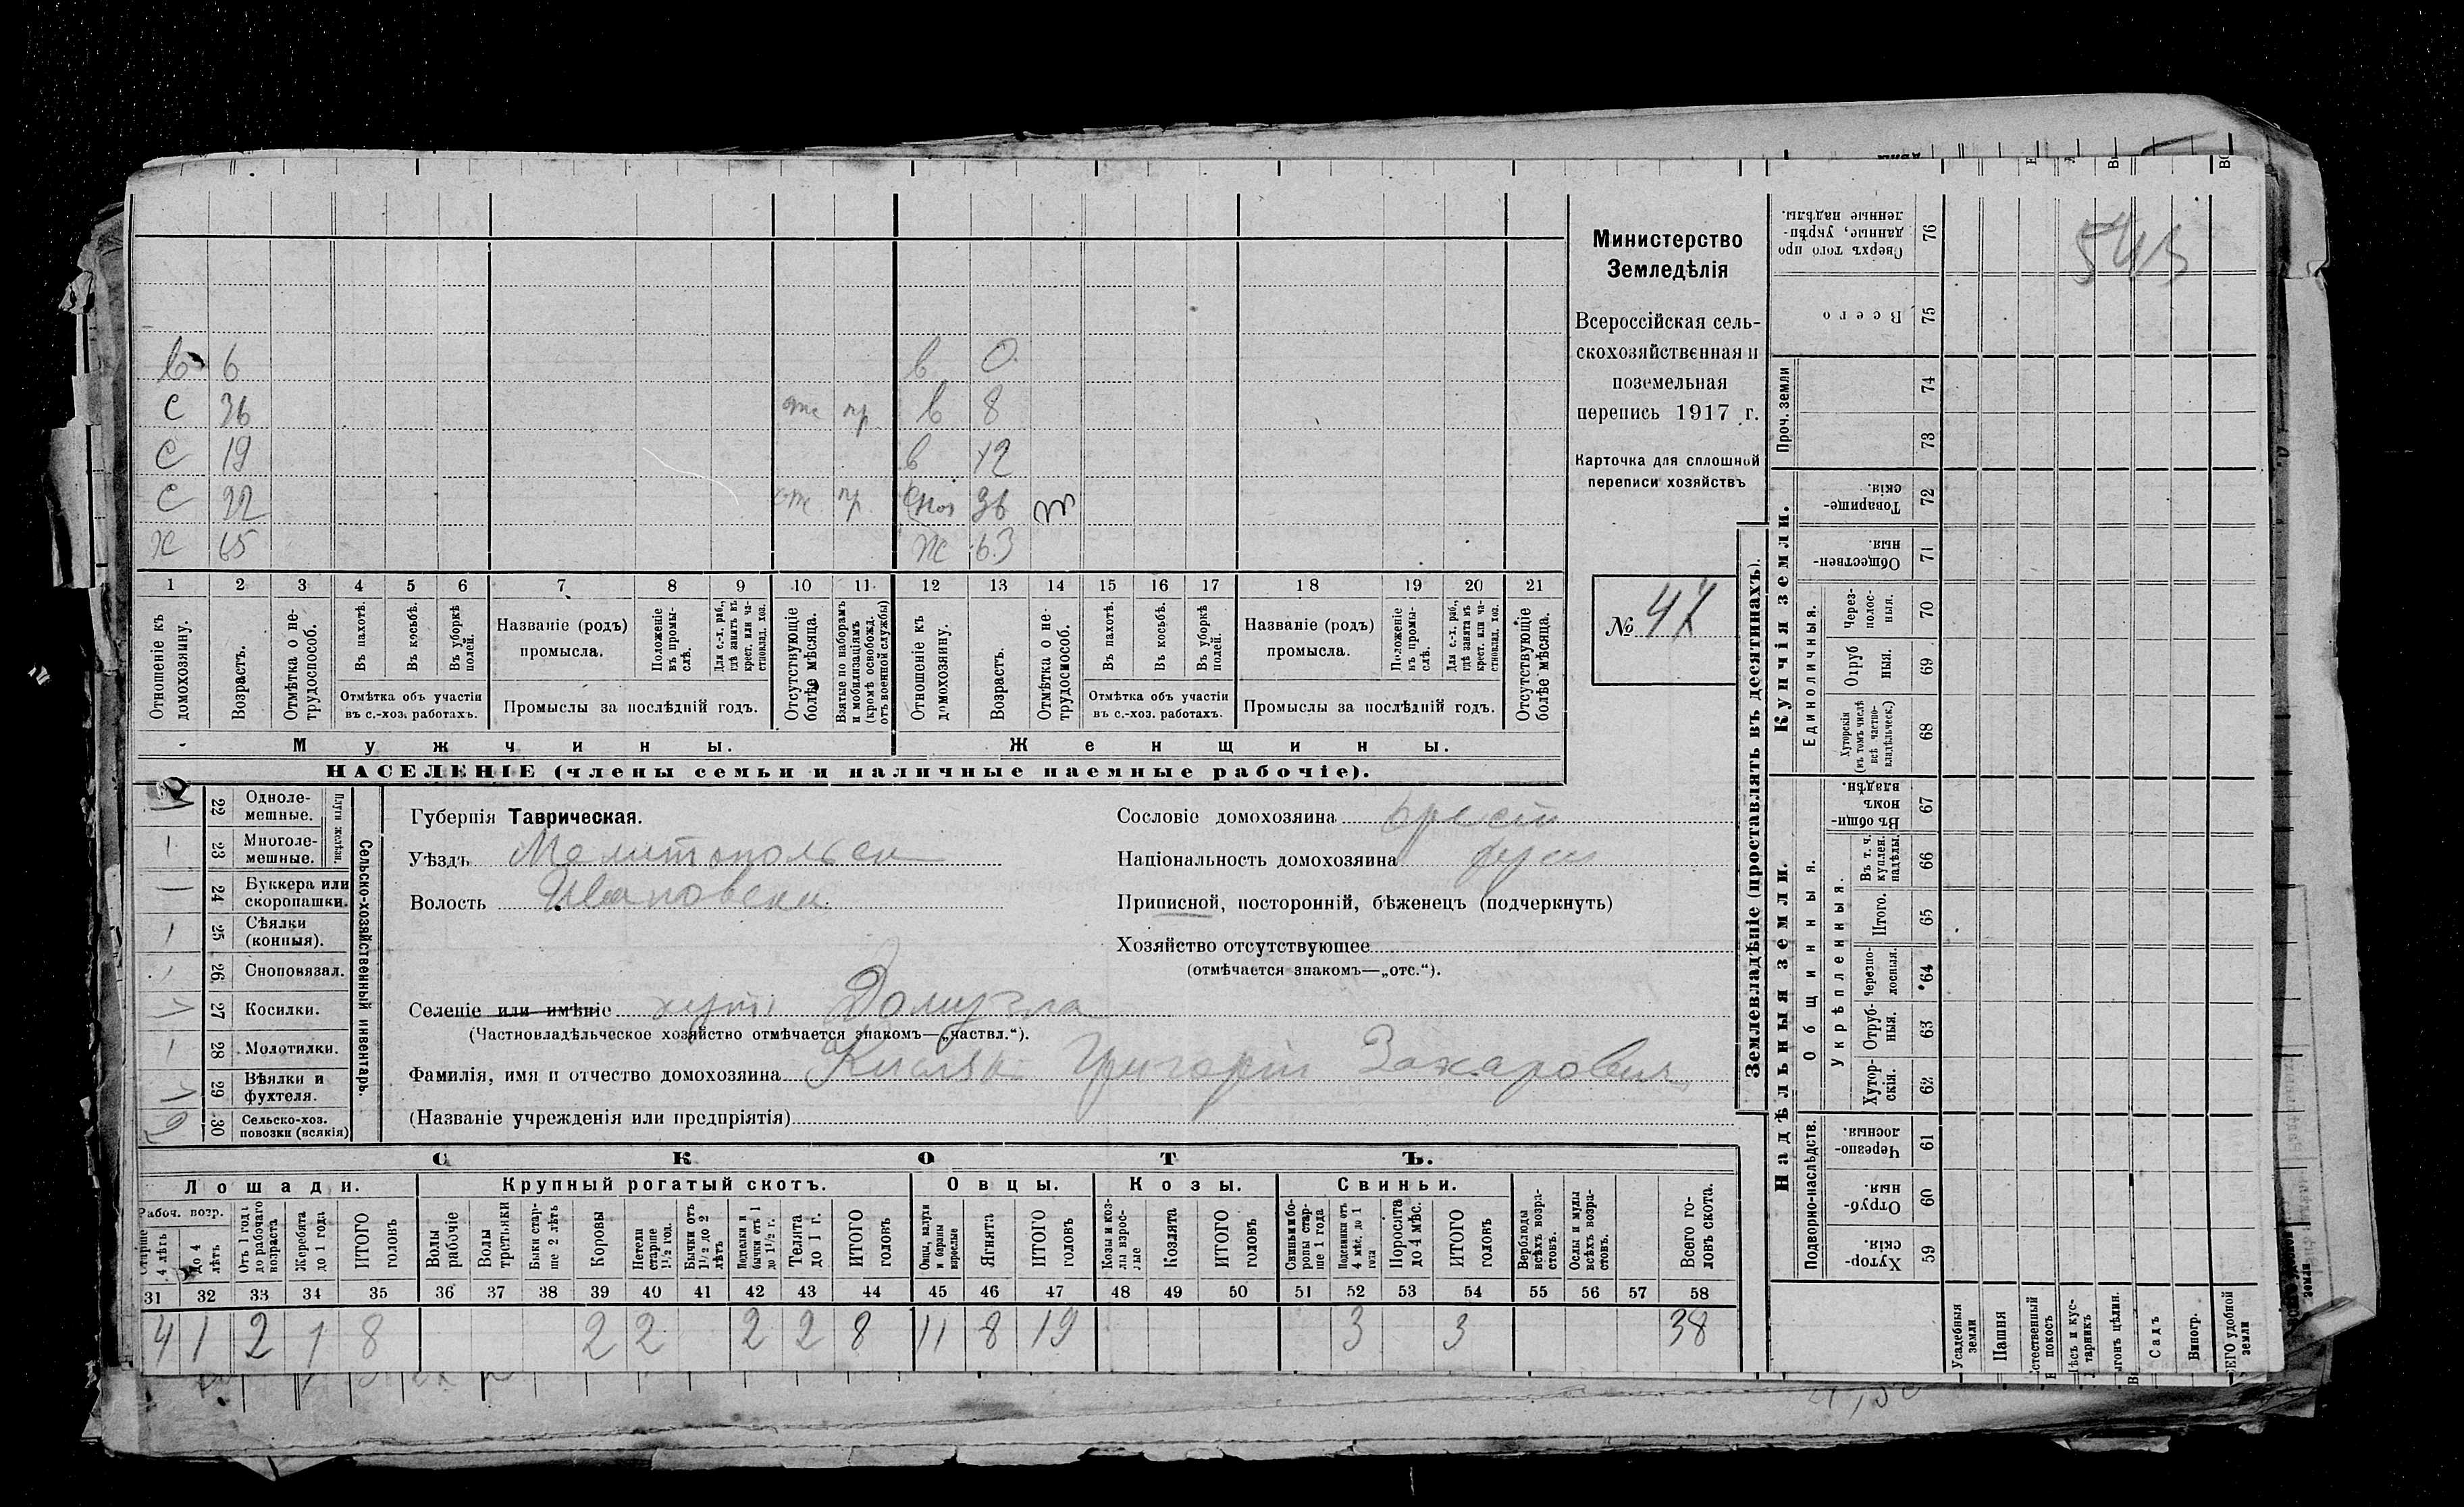 Министерство
Земледѣлія
Всероссійская сель-
скохозяйственная и
поземельная
перепись 1917 г.
Карточка для сплошной
переписи хозяйствъ
№ 47
в 6 в 0
с 36 отс пр в 8
с 19 в 12
с 22 отс пр снох 36
х 65 ж 63
1 2 3 4 5 6 7 8 9 10 11 12 13 14 15 16 17 18 19 20 21
Отношеніе къ домохозяину.
Возрастъ.
Отмѣтка о не-трудоспособ.
Въ пахотѣ.
Въ косьбѣ.
Въ уборкѣ полей.
Отмѣтка объ участіи
въ с.-хоз. работахъ.
Названіе (родъ)
промысла.
Положеніе въ промы-слѣ.
Для с.-х. раб., гдѣ занятъ въ крест. или ча-стновлад. хоз.
Промыслы за послѣдній годъ.
Отсутствующіе болѣе мѣсяца.
Взятые по наборамъ и мобилизаціямъ (кромѣ освобожд. отъ военной службы)
Отношеніе къ домохозяину.
Возрастъ.
Отмѣтка о не-трудоспособ.
Въ пахотѣ.
Въ косьбѣ.
Въ уборкѣ полей.
Отмѣтка объ участіи
въ с.-хоз. работахъ.
Названіе (родъ)
промысла.
Положеніе въ промы-слѣ.
Для с.-х. раб., гдѣ занята въ крест. или ча-стновлад. хоз.
Промыслы за послѣдній годъ.
Отсутствующіе болѣе мѣсяца.
Мужчины.
Женщины.
НАСЕЛЕНІЕ (члены семьи и наличные наемные рабочіе).
Сельско-хозяйственный инвентарь.
Плуги желѣзн.
22 Одноле-мешные.
1 23 Многоле-мешные.
1 24 Буккера или скоропашки.
1 25 Сѣялки (конныя).
1 26 Сноповязал.
27 Косилки.
1 28 Молотилки.
29 Вѣялки и фухтеля.
2 30 Сельско-хоз. повозки (всякія)
Губернія Таврическая.
Уѣздъ Мелитопольск
Волость Ивановская
Селеніе или имѣніе хут. Домузла
(Частновладѣльческое хозяйство отмѣчается знакомъ—„частвл.“).
Фамилія, имя и отчество домохозяина Григорій Захарович
(Названіе учрежденія или предпріятія)
Сословіе домохозяина крест
Національность домохозяина рус
Приписной, посторонній, бѣженецъ (подчеркнуть)
Хозяйство отсутствующее
(отмѣчается знакомъ—„отс.“).
СКОТЪ.
Лошади. Крупный рогатый скотъ. Овцы. Козы. Свиньи.
Рабоч. возр.
Старше 4 лѣтъ
до 4 лѣтъ
Отъ 1 года до рабочаго возраста
Жеребята до 1 года
ИТОГО головъ
Волы рабочіе
Волы третьяки
Быки стар-ше 2 лѣтъ
Коровы
Нетели старше 1½ год.
Бычки отъ 1½ до 2 лѣтъ
Нетелки и бычки отъ 1 до 1½ г.
Телята до 1 г.
ИТОГО головъ
Овцы, валухи и бараны взрослые
Ягнята
ИТОГО головъ
Козы и коз-лы взрос-лые
Козлята
ИТОГО головъ
Свиньи и бо-ровы стар-ше 1 года
Подсвинки отъ 4 мѣс. до 1 года
Поросята до 4 мѣс.
ИТОГО головъ
Верблюды всѣхъ возра-стовъ.
Ослы и мулы всѣхъ возра-стовъ.
Всего го-ловъ скота.
31 32 33 34 35 36 37 38 39 40 41 42 43 44 45 46 47 48 49 50 51 52 53 54 55 56 57 58
4 1 2 1 8 2 2 2 2 8 11 8 19 3 3 38
Землевладѣніе (проставлять въ десятинахъ).
Надѣльныя земли.
Купчія земли.
Проч. земли
Подворно-наслѣдств.
Общинныя.
Укрѣпленныя.
Единоличныя.
Сверхъ того про-данные, укрѣп-ленные надѣлы. 76
Всего 75
74
73
Товарище-скія. 72
Обществен-ныя. 71
Через-полос-ныя. 70
Отруб-ныя. 69
Хуторскія (въ томъ числѣ всѣ частно-владѣльческ.) 68
Въ общи-номъ владѣн. 67
Въ т. ч. куплен. надѣлы. 66
Итого. 65
Черезпо-лосныя. 64
Отруб-ныя. 63
Хутор-скія. 62
Черезпо-лосныя. 61
Отруб-ныя. 60
Хутор-скія. 59
Усадебныя земли
Пашня
Естественный покосъ
Лѣсъ и кус-тарникъ
Выгонъ цѣлин.
Садъ
Виногр.
ВСЕГО удобной земли
543